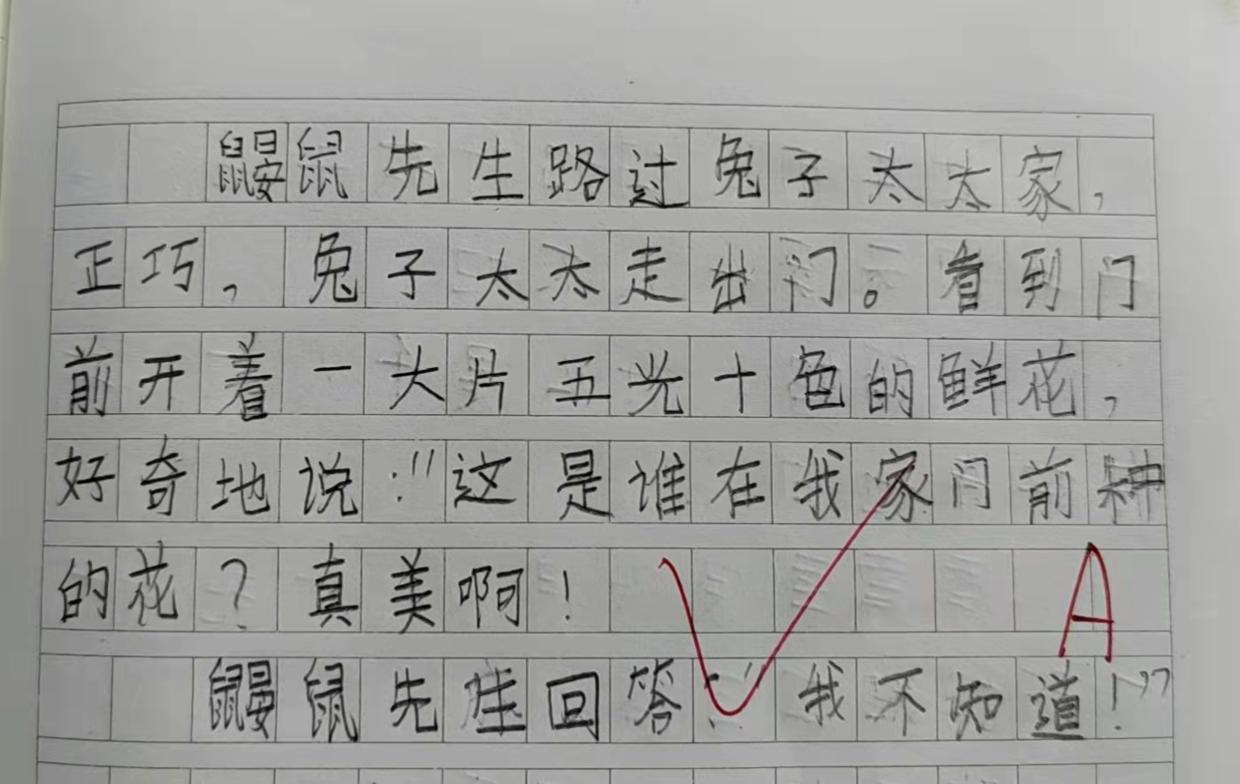 鼹鼠先生路过兔子太太家，
正巧，兔子太太走出门。看到门
前开着一大片五光十色的鲜花，
好奇地说：“这是谁在我家门前种
的花？真美啊！
A
鼹鼠先生回答：“我不知道！”